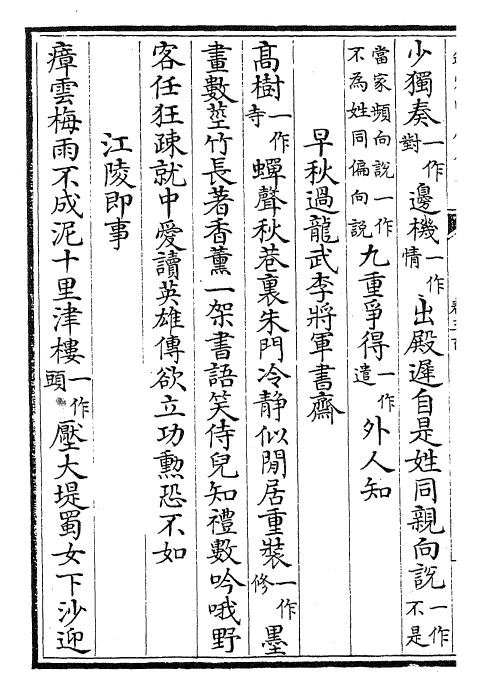 少獨奏一作對邊機一作情出殿遲自是姓同親向說一作不是
當家頻向說一作不為姓同偏向說九重爭得一作遣外人知
早秋過龍武李將軍書齋
高樹一作寺蟬聲秋巷裏朱門冷靜似閒居重裝一作修墨
畫數莖竹長著香薰一架書語笑侍兒知禮數吟哦野
客任狂疎就中愛讀英雄傳欲立功勲恐不如
江陵即事
瘴雲梅雨不成泥十里津樓一作頭壓大堤蜀女下沙迎